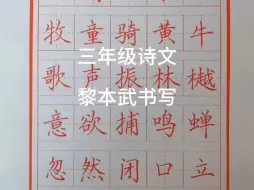 牧童骑黄牛
歌声振林樾
意欲捕鸣蝉
忽然闭口立
三年级诗文
黎本武书写